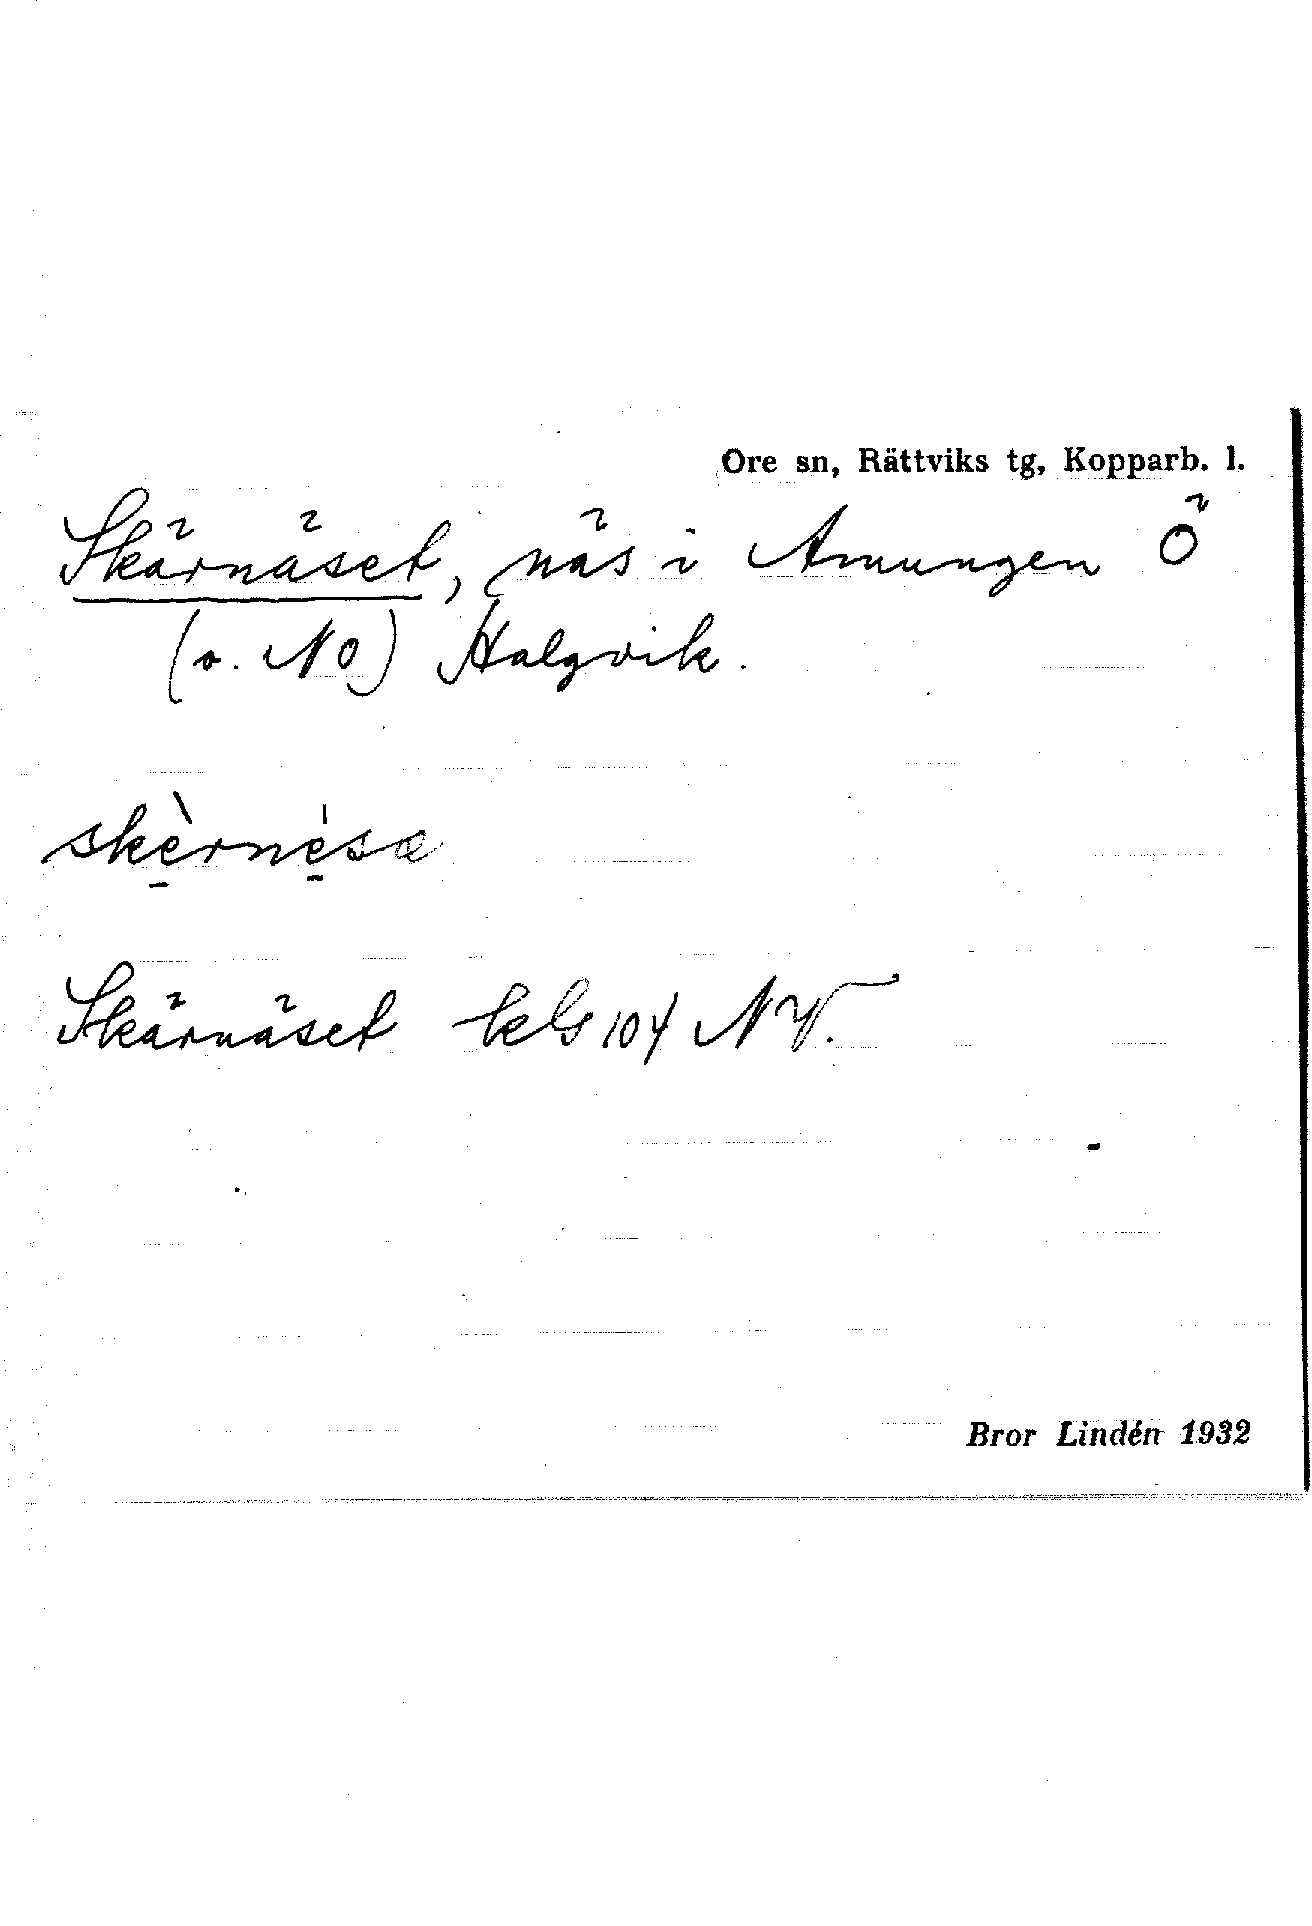 Ore sn, Rättviks tg, Kopparb. l.
Skärnäset, näs i Amungen Ö
(o. NO) Halgvik.
skè̱rné̱sæ
Skärnäset kls 104 NV.
Bror Lindén 1932